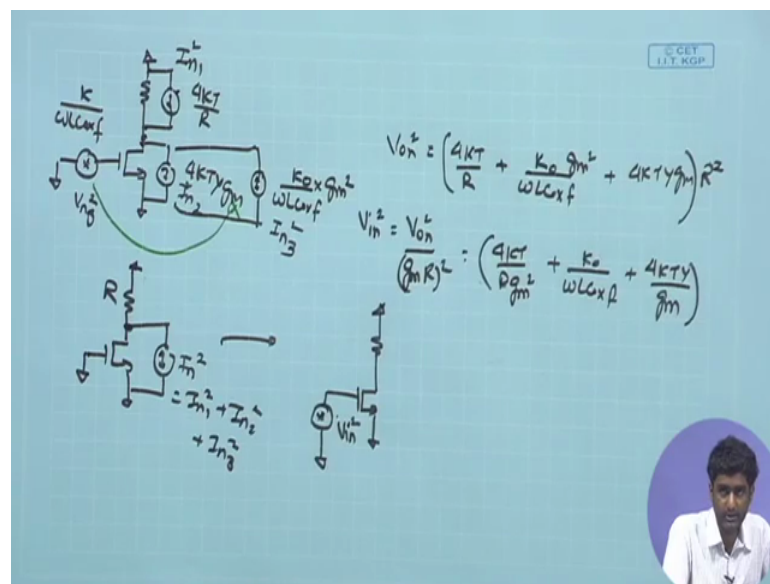 © CET
I.I.T. KGP
In₁²
K
WLCoxf
4KT
R
Vn₃²
4KTγgm
In₂²
K₀ × gm²
WLCoxf
In₃²
Von² = (4KT/R + K₀ gm²/WLCoxf + 4KTγgm) R²
Vin² = Von²/(gmR)² = (4KT/Rgm² + K₀/WLCoxf + 4KTγ/gm)
R
In²
= In₁² + In₂²
+ In₃²
Vin²